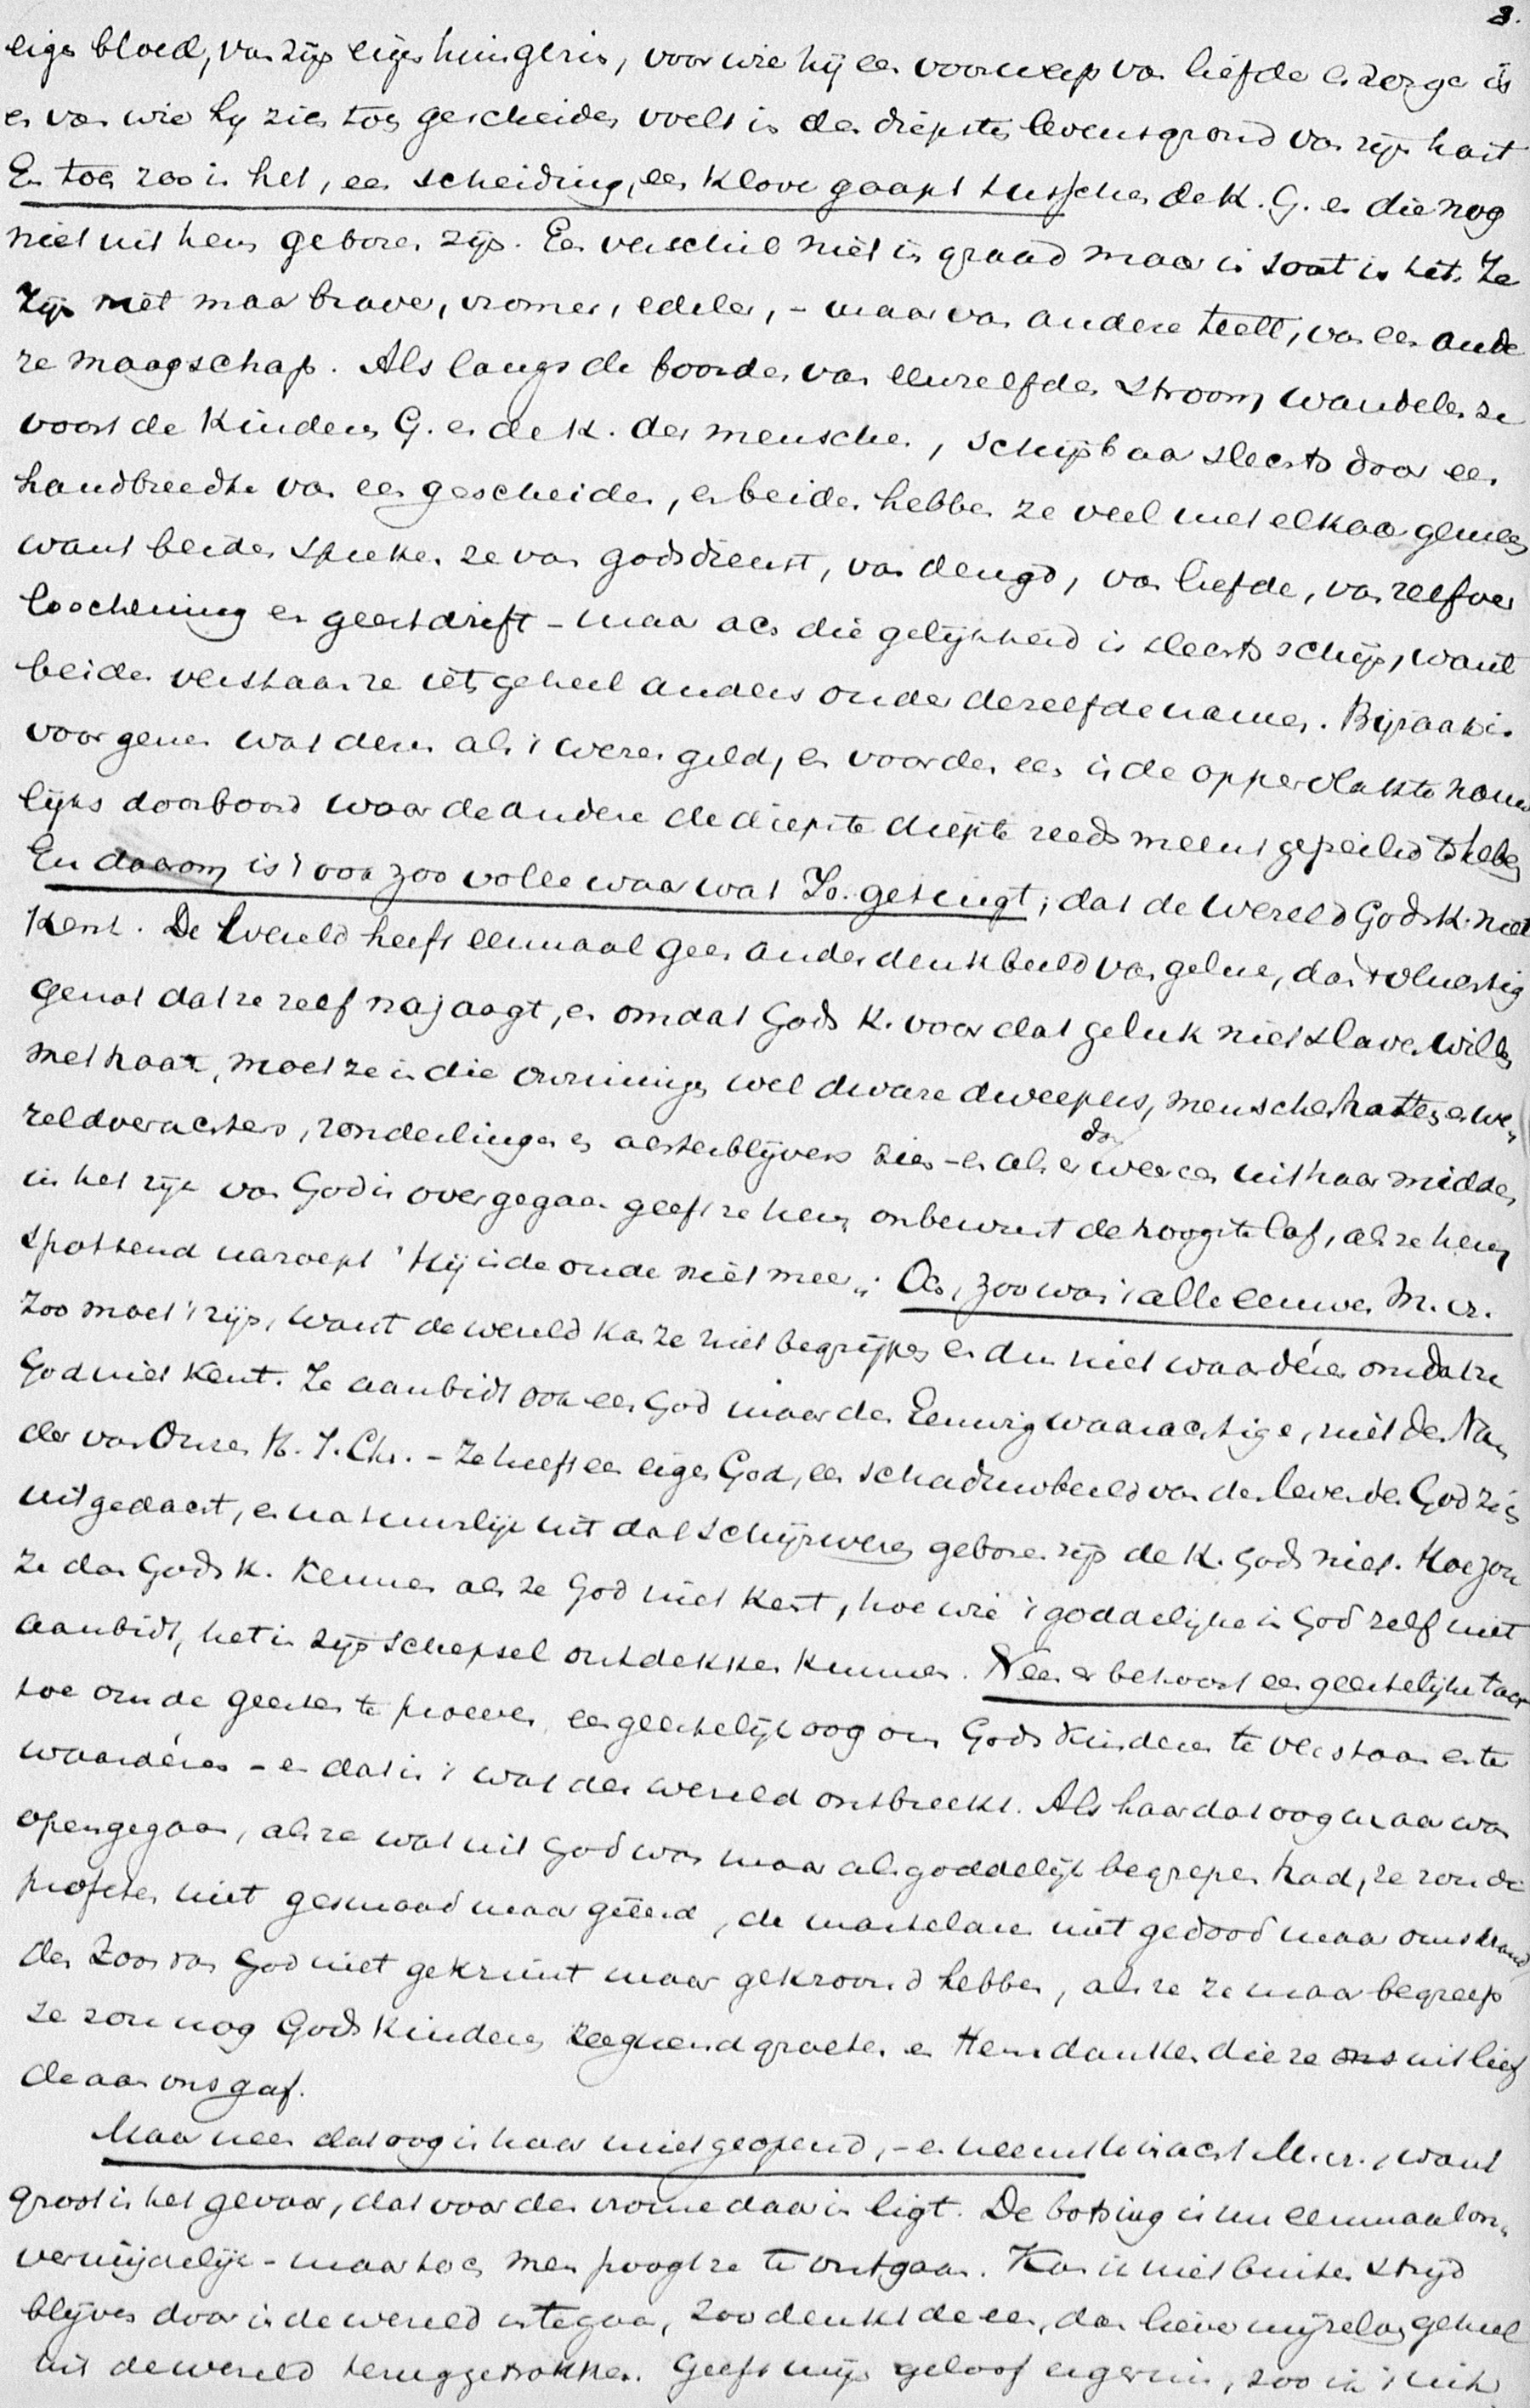 3.
eige bloed, van zijn eigen huisgezin, voor wie hij een voorwerp van liefde en zorge is
en van wie hij zich toch gescheiden voelt in den diepsten levensgrond van zijn hart
En toch zoo is het, een scheiding, een klove gaapt tusschen de K. G. en die nog
niet uit hem geboren zijn. Een verschil niet in graad maar in soort is het. Ze
zijn niet maar braver, vromer, edeler, - maar van andere teelt, van een ande
re maagschap. Als langs de boorden van eenzelfden stroom wandelen ze
voort de kinderen G. en de k. der menschen, schijnbaar slechts door een
handbreedte van een gescheiden, en beiden hebben ze veel met elkaar gemeen
want beiden spreken ze van godsdienst, van deugd, van liefde, van zelfver
loochening en geestdrift - maar ach die gelijkheid is slechts schijn, want
beiden verstaan ze iets geheel anders onder dezelfde namen. Bijzaak is
voor genen wat dezen als 't wezen geldt, en voor den een is de oppervlakte nauw
lijks doorboord waar de andere de diepste diepte reeds meent gepeild te hebben
En daarom is 't ook zoo volle waar wat Jo. getuigt; dat de wereld Gods K. niet
kent. De wereld heeft eenmaal geen ander denkbeeld van geluk, dan 't vluchtig
genot dat ze zelf najaagt, en omdat Gods K. voor dat geluk niet slaven willen
met haar, moet ze in die overwinnings wel dwaze dweepers, menschenhaters en we,,
reldverachters, zonderlingen en achterblijvers zien - en als er dan weer een uit haar midden
in het rijk van God is overgegaan geeft ze hem onbewust de hoogste lof, als ze hem
spottend naroept "Hij is de oude niet meer". Och, zoo was 't alle eeuwen M. vr.
Zoo moet 't zijn, want de wereld kan ze niet begrijpen en dus niet waardéren omdat ze
God niet kent. Ze aanbidt ook een God maar den Eeuwig waarachtige, niet den Va,,
der van Onzen H. J. Chr. - Ze heeft een eigen God, een schaduwbeeld van den levenden God zich
uitgedacht, en natuurlijk uit dat schijnwezen geboren zijn de K. Gods niet. Hoe zou
ze dan Gods K. kennen als ze God niet kent, hoe wie 't goddelijke in God zelf niet
aanbidt, het in zijn schepsel ontdekken kunnen. Neen er behoort een geestelijke taak
toe om de geesten te proeven, een geestelijk oog om Gods kinderen te verstaan en te
waardéren - en dat is 't wat der wereld ontbreekt. Als haar dat oog maar was
opengegaan, als ze wat uit God was maar als goddelijk begrepen had, ze zou de
profeten niet gesmaad maar geëerd, de martelaren niet gedood maar omstrand
den Zoon van God niet gekruist maar gekroond hebben, als ze ze maar begreep
ze zou nog Gods kinderen zeegnend groeten en Hem danken die ze ons uit lief
de aan ons gaf.
Maar neen dat oog is haar niet geopend, - en neemt 't in acht M. vr., want
groot is het gevaar, dat voor den vrome daarin ligt. De botsing is nu eenmaal on,,
vermijdelijk - maar toch men poogt ze te ontgaan. Kan ik niet buiten strijd
blijven door in de wereld in te gaan, zoo denkt de een, dan liever mijzelven geheel
uit de wereld teruggetrokken. Geeft mijn geloof ergernis, zoo